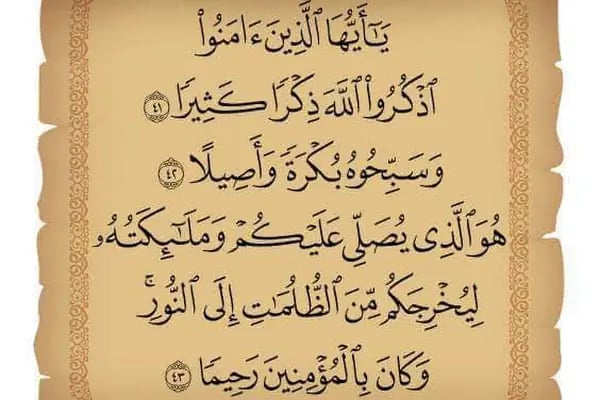 يَـٰٓأَيُّهَا ٱلَّذِينَ ءَامَنُوا۟
ٱذْكُرُوا۟ ٱللَّهَ ذِكْرًا كَثِيرًا ٤١
وَسَبِّحُوهُ بُكْرَةً وَأَصِيلًا ٤٢
هُوَ ٱلَّذِى يُصَلِّى عَلَيْكُمْ وَمَلَـٰٓئِكَتُهُۥ
لِيُخْرِجَكُم مِّنَ ٱلظُّلُمَـٰتِ إِلَى ٱلنُّورِ ۚ
وَكَانَ بِٱلْمُؤْمِنِينَ رَحِيمًا ٤٣